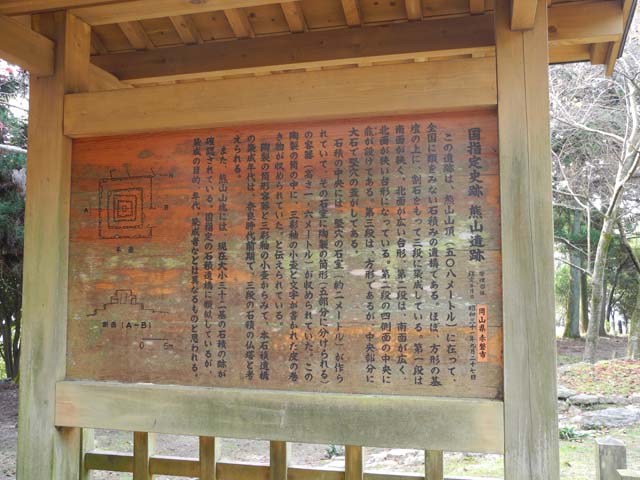 国指定史跡 熊山遺跡
昭和三十一年九月二十七日
岡山県赤磐市
この遺跡は、熊山山頂(五〇八メートル)に在って、
全国に類をみない石積みの遺構である。ほぼ、方形の基
壇の上に、割石をもって三段に築成している。第一段は
南面が狭く、北面が広い台形、第二段は、南面が広く、
北面が狭い台形になっている。第二段の四側面の中央に
龕が設けてある。第三段は、方形であるが、中央部分に
大石で竪穴の蓋がしてある。
石積の中央には、竪穴の石室(約二メートル)が作ら
れていて、その石室に陶製の筒形(五部分に分けられる)
の容器(高さ一・六メートル)が収められていた。この
陶製の筒の中に、三彩釉の小壷と文字が書かれた皮の巻
き物が収められていた、と伝えられている。
陶製の筒形容器と三彩釉の小壷からみて、本石積遺構
の築成年代は、奈良時代前期で、三段の石積の仏塔と考
えられる。
また、熊山山塊には、現在大小三十二基の石積の跡が
確認されている。国指定の石積遺構に類似しているが、
築成の目的、年代、築成者などは異なるものと思われる。
A
B
N
断面(A-B)
0
5m